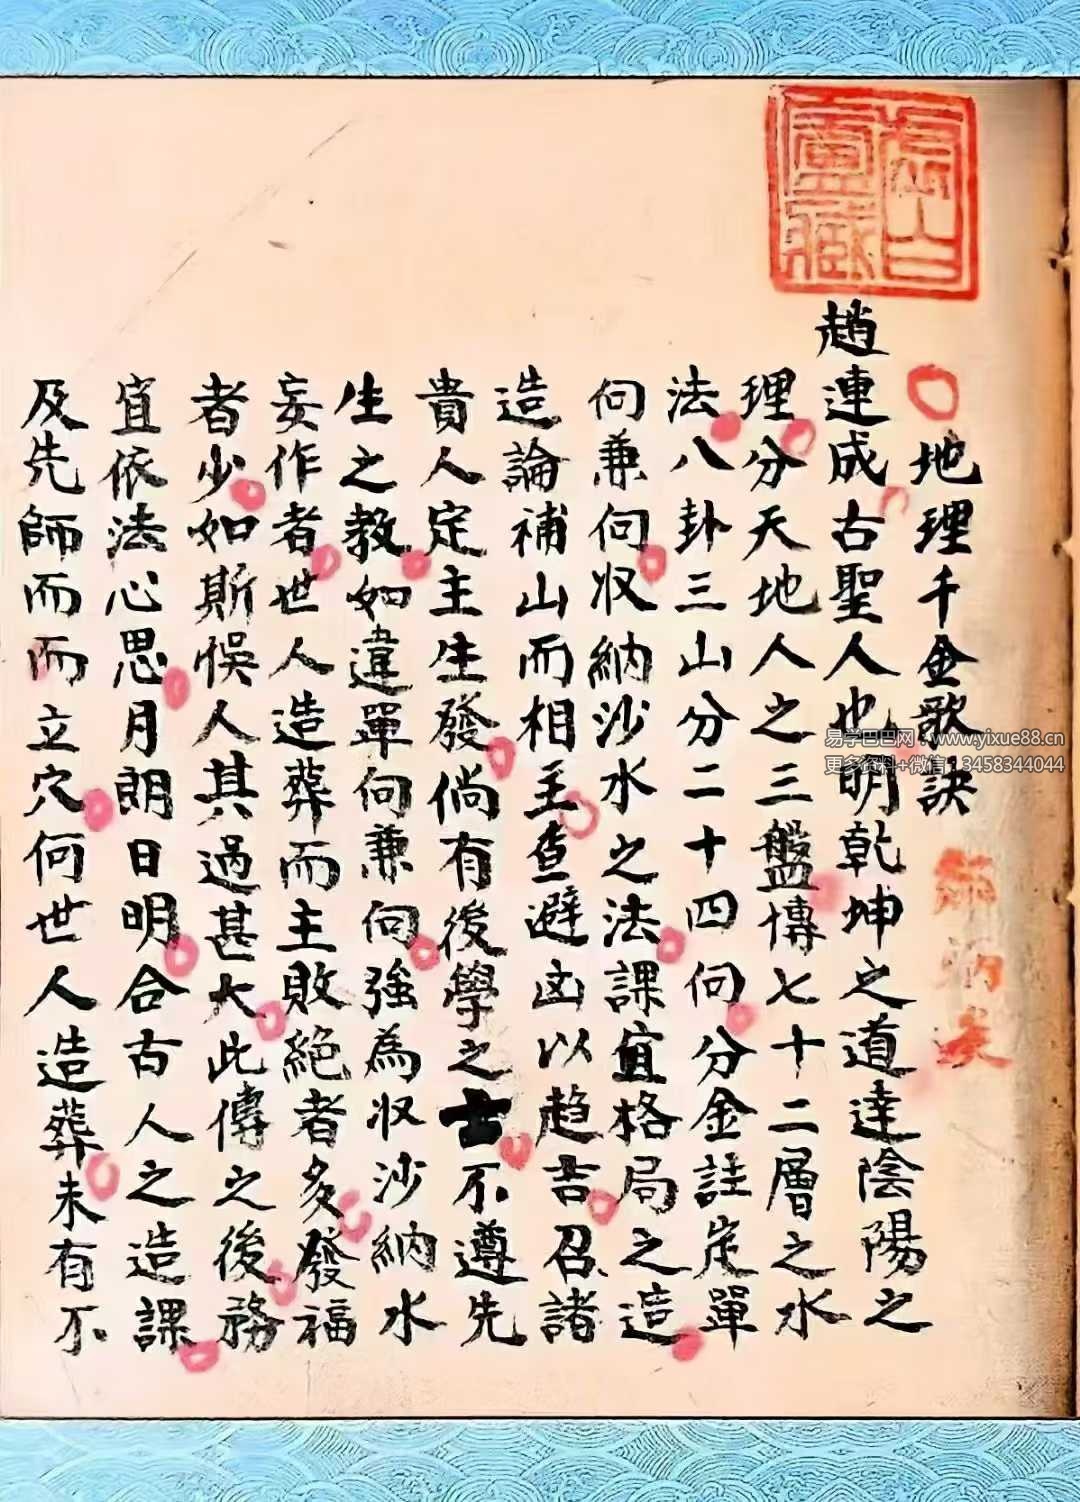 地理千金歌訣
趙連成古聖人也明乾坤之道達陰陽之
理分天地人之三盤傳七十二層之水
法八卦三山分二十四向分金註定單
向兼向收納沙水之法課宜格局之造
造論補山而相主查避凶以趨吉召諸
貴人定主生發倘有後學之士不遵先
生之教如違單向兼向強為收沙納水
妄作者世人造葬而主敗絕者多發福
者少如斯悞人其過甚大此傳之後務
宜依法心思月朗日明合古人之造課
及先師而而立穴何世人造葬未有不
易学巴巴网：www.yixue88.cn
更多资料+微信：3458344044